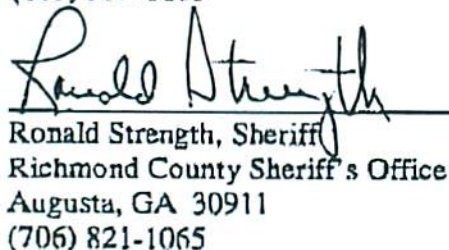 Ronald Strength
Ronald Strength, Sheriff
Richmond County Sheriff's Office
Augusta, GA 30911
(706) 821-1065